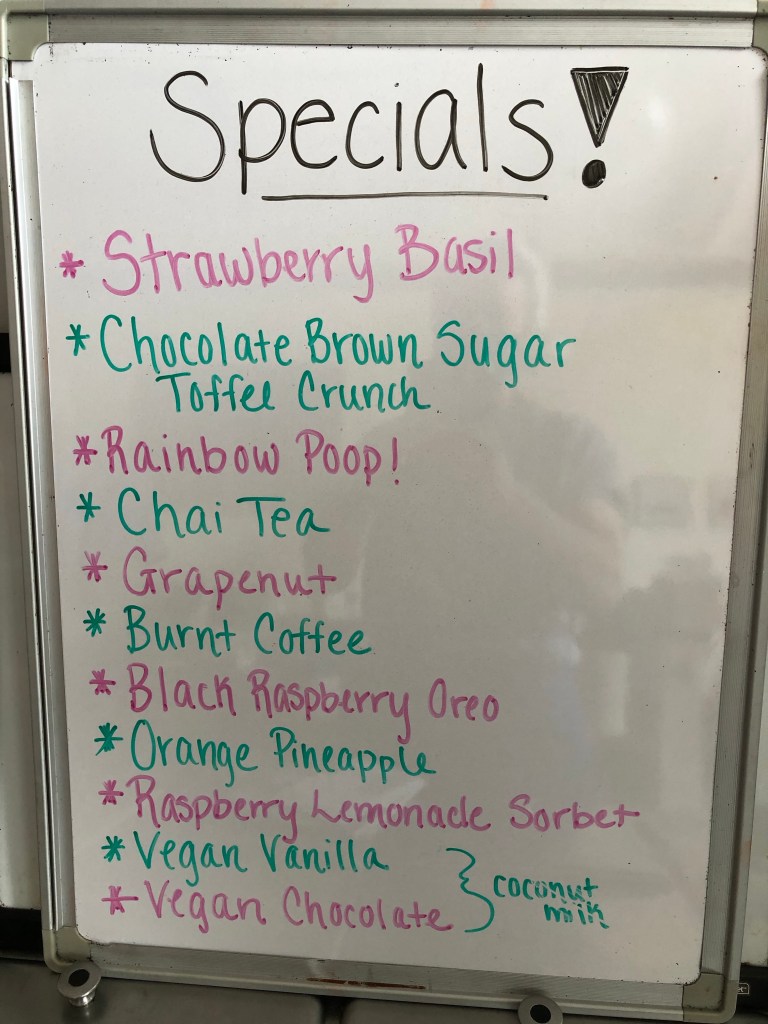 Specials!
* Strawberry Basil
* Chocolate Brown Sugar
Toffee Crunch
* Rainbow Poop!
* Chai Tea
* Grapenut
* Burnt Coffee
* Black Raspberry Oreo
* Orange Pineapple
* Raspberry Lemonade Sorbet
* Vegan Vanilla
* Vegan Chocolate
coconut
milk